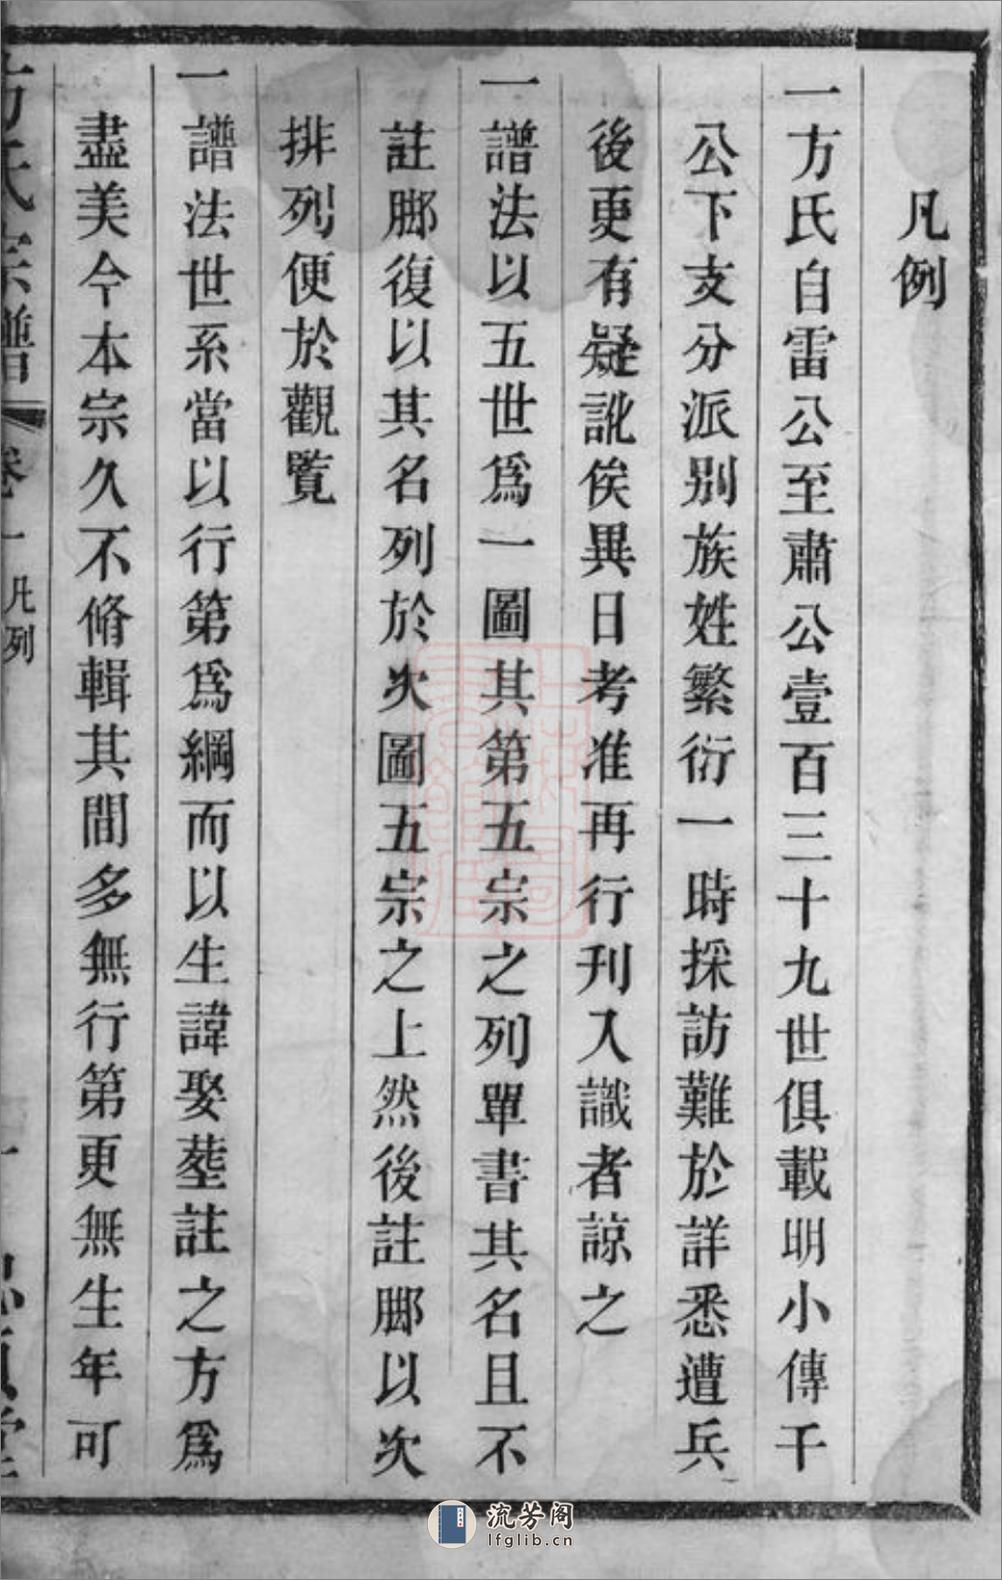 凡例
一方氏自雷公至肅公壹百三十九世俱載明小傳千
公下支分派别族姓繁衍一時採訪難於詳悉遭兵
後更有疑訛俟異日考准再行刊入識者諒之
一譜法以五世爲一圖其第五宗之列單書其名且不
註脚復以其名列於次圖五宗之上然後註脚以次
排列便於觀覽
一譜法世系當以行第爲綱而以生諱娶塟註之方爲
盡美今本宗久不脩輯其間多無行第更無生年可
方氏宗譜
卷一
凡例
流芳阁
lfglib.cn